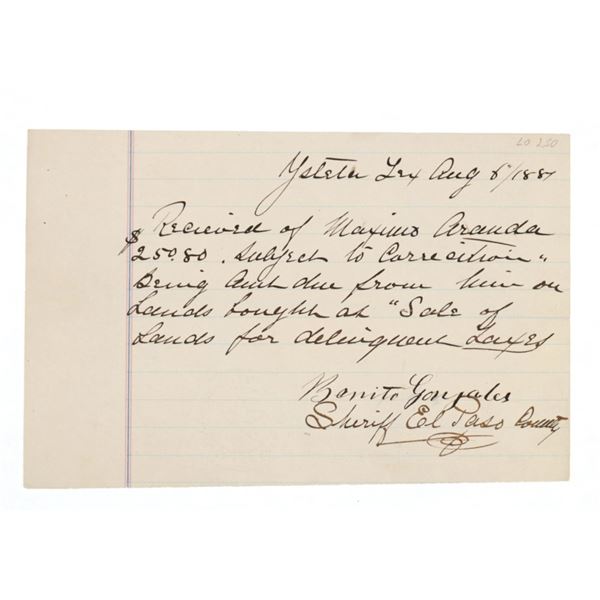 LO 250
Ysleta Tex Aug 8"/1881
Recieved of Maximo Aranda
$250.80. Subject to Correction"
being Amt due from him on
Lands bought at "Sale of
Lands for delinquent Taxes
Benito Gonzales
Sheriff El Paso County